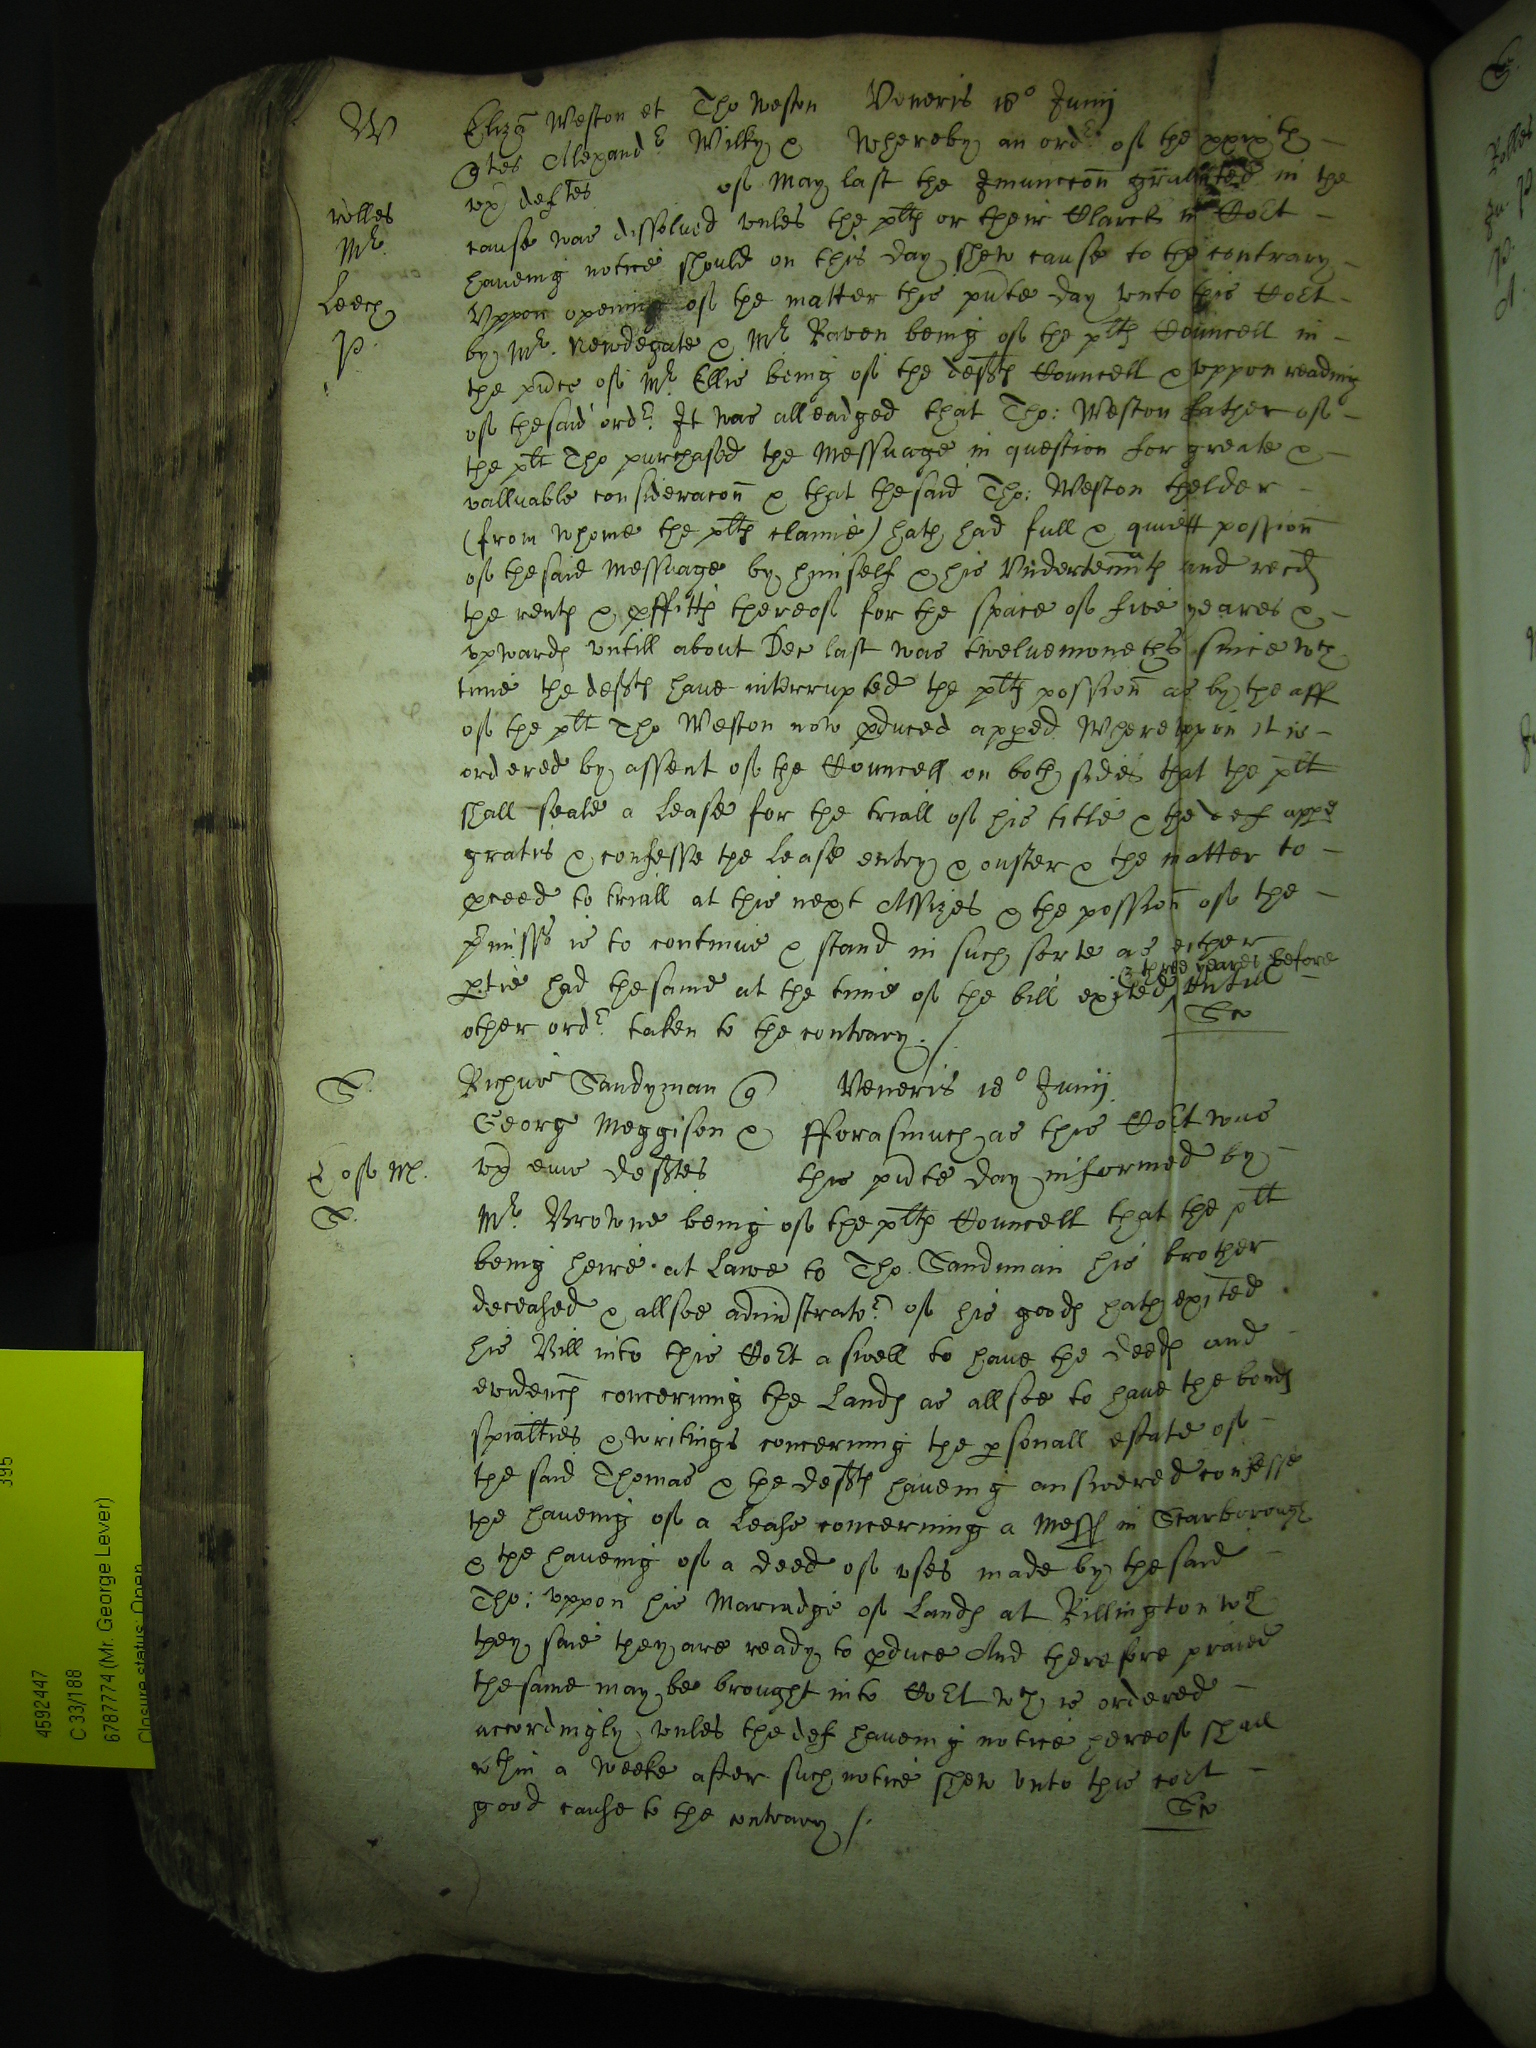 W
Eliza Weston et Tho Weston Veneris 18° Junij
qtes Allexandr Wilky & Whereby an ordr of the xxixth
ux deftes of May last the Iniunccon graunted in the
rolles
cause was dissolved unles the plts or their Clarck in Cort
Mr.
haveing notice should on this day shew cause to the contrary
Leech
Uppon opening of the matter this pnte day unto this Cort
by Mr. Newdegate & Mr Raven being of the plts Councell in
p.
the pnce of Mr Ellis being of the defts Councell & uppon reading
of the said ordr It was alleadged that Tho: Weston father of
the plt Tho purchased the Messuage in question for greate &
valluable consideracon & that the said Tho: Weston thelder
(from whome the plts clame) hath had full & quiett possion
of the said Messuage by himself & his Undertennts and recd
the rents & pffitts thereof for the space of five yeares &
upwards untill about Dec last was twelvemoneths since wch
time the defts have interrupted the plts possion as by the aff
of the plt Tho Weston now pduced appeed Whereuppon it is
ordered by assent of the Councell on both sides that the plt
shall seale a Lease for the triall of his title & the def appe
gratis & confesse the Lease entry & ouster & the matter to
pceed to triall at this next Assizes & the possion of the
pmisss is to continue & stand in such sorte as either
& three yeares before
ptie had the same at the time of the bill exited untill
other ordr taken to the contrary ./.
S.
Richus Sandyman q Veneris 18° Junij
George Meggison & fforasmuch as this Cort was
ux eius deftes this pnte day informed by
S.
Mr. Browne being of the plts Councell that the plt
being heire at Lawe to Tho. Sandiman his brother
deceased & allsoe adminstrator of his goods hath exited
his Bill into this Cort aswell to have the deeds and
evidencs concerning the Lands as allsoe to have the bonds
spialties & writings concerning the psonall estate of
the said Thomas & the defts haveing answered confesse
the haveing of a Lease concerning a Mess in Scarborough
& the haveing of a deed of uses made by the said
Tho: uppon his Mariadge of Lands at Rillington wch
they saie they are ready to pduce And therefore praied
the same may be brought into Cort wch is ordered
accordingly unles the def haveing notice hereof shall
wthin a weeke after such notice shew unto this cort
good cause to the contrary /.
395
4592447
C 33/188
6787774 (Mr. George Lever)
Closure status: Open